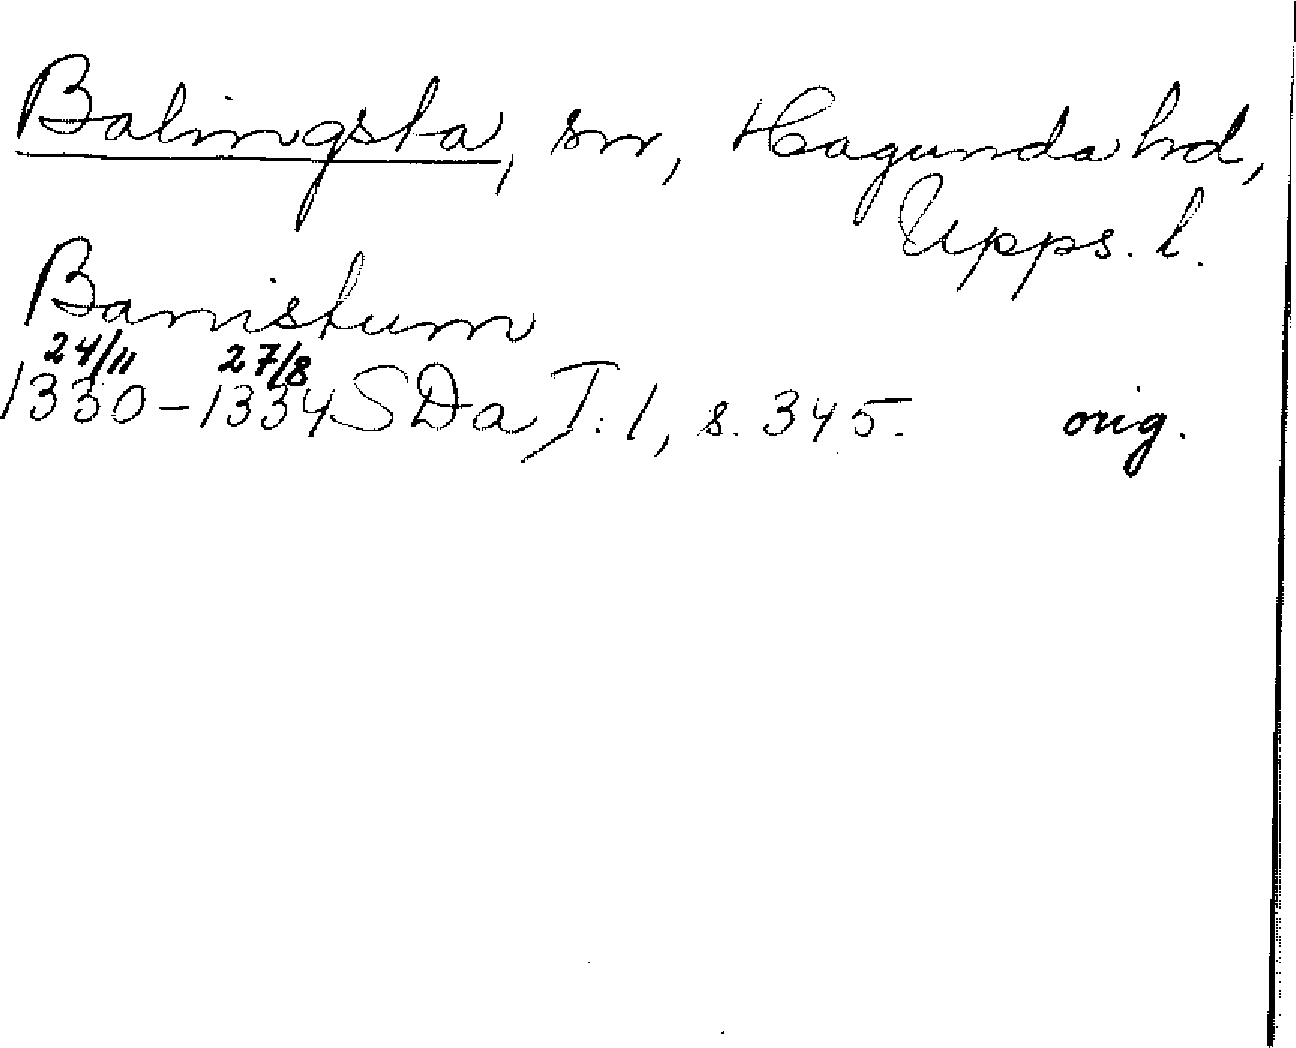 Balingsta, sn, Hagunda hd,
Upps. l.
Barnistum
24/11 27/8
1330-1334 SDa I:1, s. 345. orig.